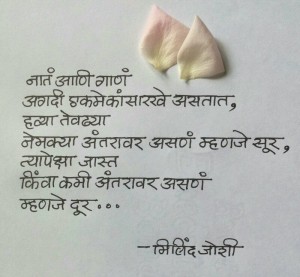 नातं आणि गाणं
अगदी एकमेकांसारखे असतात,
हव्या तेवढ्या
नेमक्या अंतरावर असणं म्हणजे सूर,
त्यापेक्षा जास्त
किंवा कमी अंतरावर असणं
म्हणजे दूर...
-मिलिंद जोशी